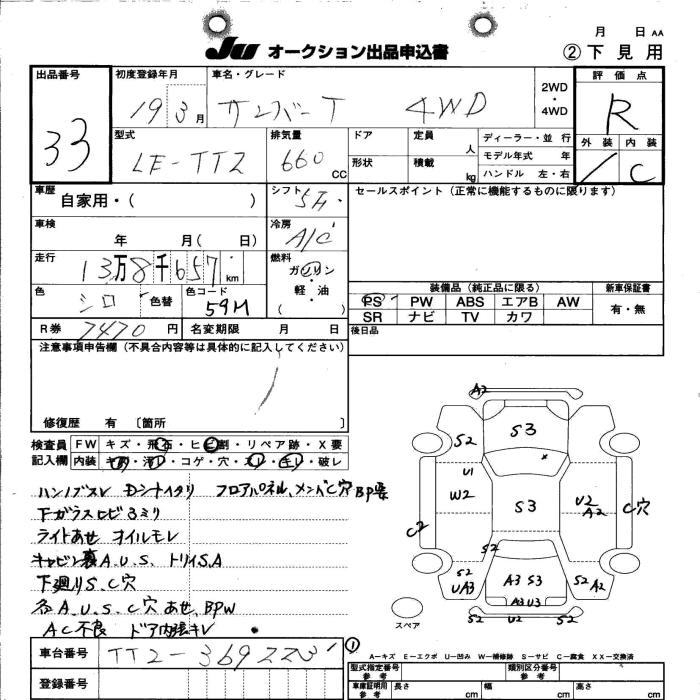 月 日 AA
JU オークション出品申込書 ②下見用
出品番号 初度登録年月 車名・グレード 2WD・4WD 評価点
33 19 3月 サンバーT 4WD R
型式 排気量 ドア 定員 人 ディーラー・並行 外装 内装
LE-TT2 660 CC 形状 積載 kg モデル年式 年 / C
ハンドル 左・右
車歴 自家用・( ) シフト 5F・ セールスポイント (正常に機能するものに限ります)
車検 年 月( 日) 冷房 A/C
走行 13万8千657km 燃料 ガソリン・軽・油
装備品(純正品に限る) 新車保証書
色 シロ 色替 色コード 59M PS PW ABS エアB AW 有・無
SR ナビ TV カワ
R券 7470円 名変期限 月 日 後日品
注意事項申告欄(不具合内容等は具体的に記入してください)
/
修復歴 有 〔箇所
検査員記入欄 FW キズ・飛石・ヒビ割・リペア跡・X要
内装 キレ・汚レ・コゲ・穴・スレ・キレ・破レ
ハンノブスレ フロアパネル、メンバC穴BP要
下ガラスヒビ3ミリ
ライトあせ オイルモレ
キャビン裏A.U.S. トリイS.A
下廻りS.C穴
各A.U.S.C穴 あせ.BPW
AC不良 ドア内張キレ
A2
S2 S3
U1
W2 S3 U2 A2 C穴
C2
S2
S2 UA3 A3 S3 S2 A2
A3 U3
S2 U2 S2
スペア
①
A-キズ E-エクボ U-凹み W-補修跡 S-サビ C-腐食 XX-交換済
車台番号 TT2-369223
型式指定番号 参考 類別区分番号 参考
登録番号 車庫証明用 参考 長さ cm 幅 cm 高さ cm